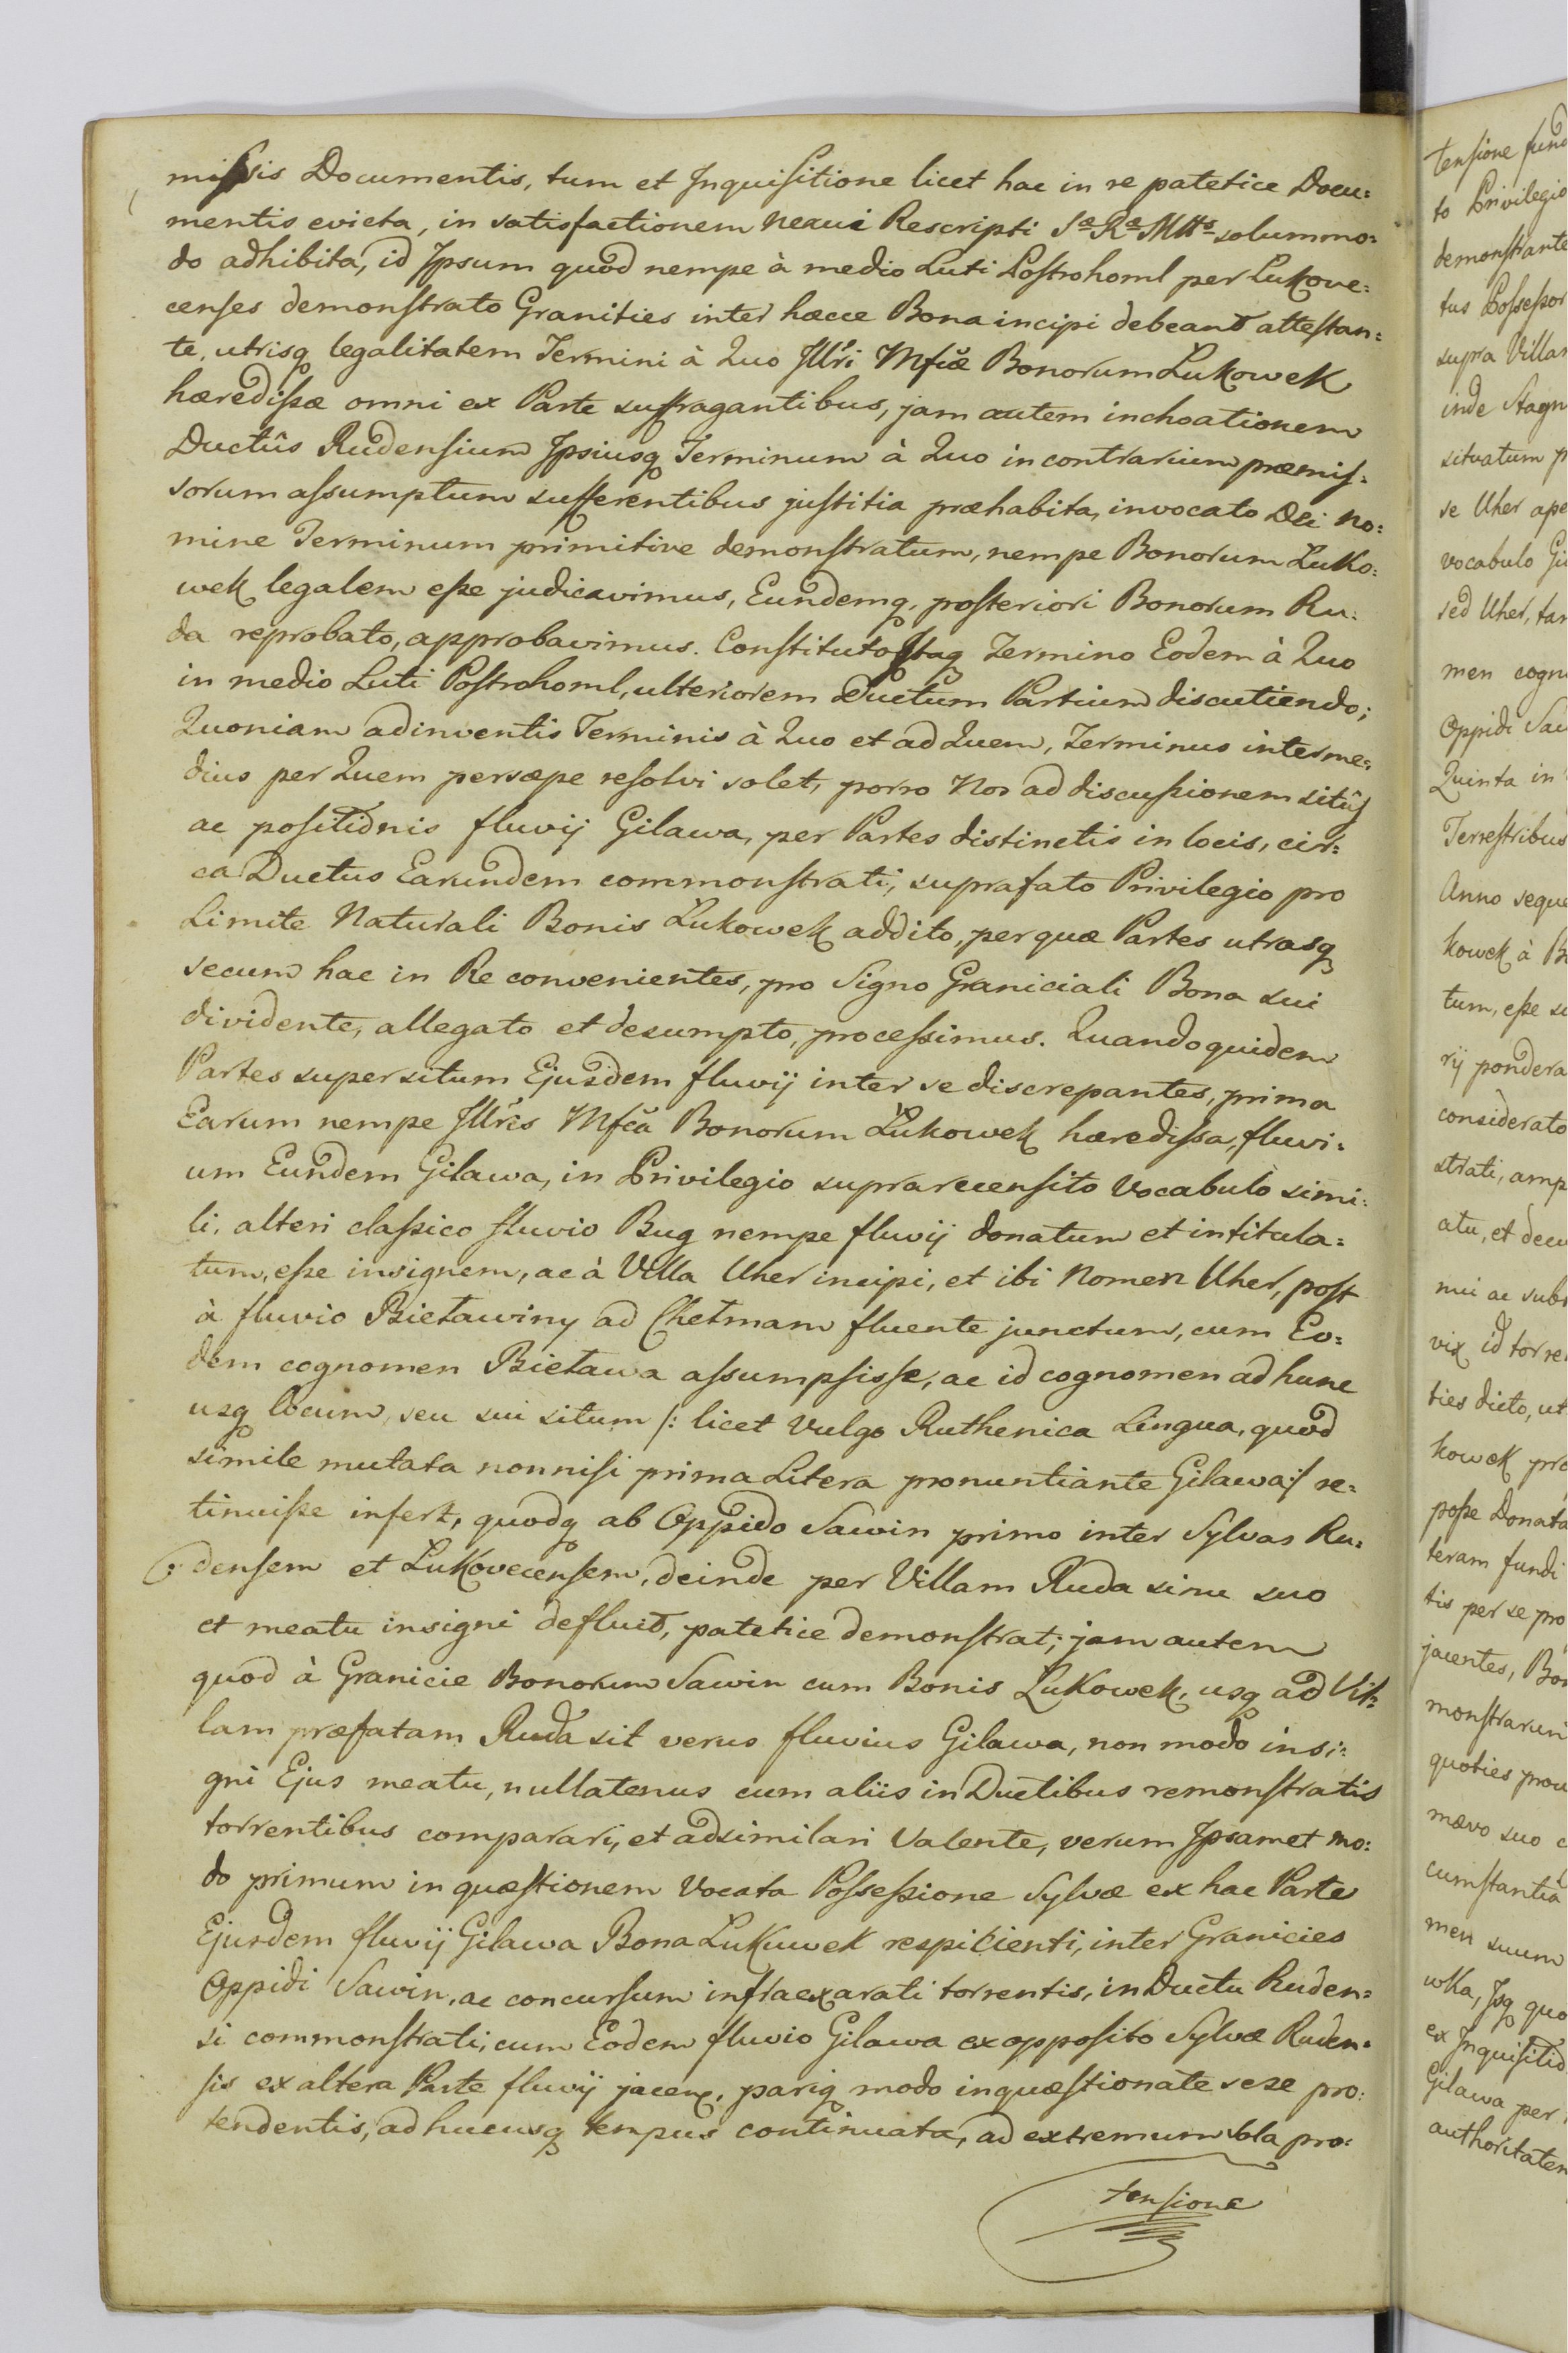 missis Documentis, tum et Inquisitione licet hac in re patetice Docu:
mentis evicta, in satisfactionem nexui Rescripti Sæ Ræ Mttis solummo:
do adhibita, id Ipsum quod nempe à medio Luti Postrohoml per Lukove:
censes demonstrato Granities inter hæcce Bona incipi debeant attestan:
te, utrisq legalitatem Termini à Quo Jllri Mfcæ Bonorum Łukowek
hæredissæ omni ex Parte suffragantibus, jam autem inchoationem
Ductûs Rudensium Ipsiusq Terminum à Quo in contrarium præmis:
sorum assumptum sufferentibus justitia præhabita, invocato Dei No:
mine Terminum primitive demonstratum, nempe Bonorum Łuko:
wek legalem esse judicavimus, Eundemq, posteriori Bonorum Ru:
da reprobato, approbavimus. Constituto Itaq Termino Eodem à Quo
in medio Luti Postrohoml, ulteriorem Ductum Partium discutiendo;
Quoniam adinventis Terminis à Quo et ad Quem, Terminus interme:
dius per Quem persæpe resolvi solet, porro Nos ad discussionem sitûs
ac positionis fluvij Gilawa, per Partes distinctis in locis, cir:
ca Ductus Earundem commonstrati, suprafato Privilegio pro
Limite Naturali Bonis Łukowek addito, per quæ Partes utrasq
secum hac in Re convenientes, pro Signo Graniciali Bona sui
dividente, allegato et desumpto, processimus. Quandoquidem
Partes super situm Ejusdem fluvij inter se discrepantes, prima
Earum nempe Jllris Mfca Bonorum Łukowek hæredissa, fluvi:
um Eundem Gilawa, in Privilegio suprarecensito Vocabulo simi:
li, alteri classico fluvio Bug nempe fluvij donatum et intitula:
tum, esse insignem, ac à Villa Uher incipi, et ibi Nomen Uher, post
à fluvio Bietawiny ad Chetmam fluente junctum, cum Eo:
dem cognomen Bietawa assumpsisse, ac id cognomen ad hunc
usq locum, seu sui situm /: licet Vulgo Ruthenica Lingua, quod
simile mutata nonnisi prima Litera pronuntiante Gilawa:/ re:
tinuisse infert, quodq ab Oppido Sawin primo inter Sylvas Ru:
densem et Lukovecensem, deinde per Villam Ruda sinu suo
et meatu insigni defluit, patetice demonstrat; jam autem
quod à Granicie Bonorum Sawin cum Bonis Łukowek, usq ad Vil:
lam præfatam Ruda sit verus fluvius Gilawa, non modo insi:
gni Ejus meatu, nullatenus cum aliis in Ductibus remonstratis
torrentibus comparari, et adsimilari Valente, verum Ipsamet mo:
do primum in quæstionem Vocata Possessione Sylvæ ex hac Parte
Ejusdem fluvij Gilawa Bona Lukuwek respicienti, inter Granicies
Oppidi Sawin, ac concursum infraexarati torrentis, in Ductu Ruden:
si commonstrati, cum Eodem fluvio Gilawa ex opposito Sylvæ Ruden:
sis ex altera Parte fluvij jacen, pariq modo inquæstionate sese pro:
tendentis, ad hucusq tempus continuata, ad extremum sola pro:
tensione
tensione fund
to Privilegio
demonstrante
tus Possessor
supra Villam
inde Stagn
situatum p
se Uher ape
vocabulo Gi
sed Uher, tan
men cogno
Oppidi Saw
Quinta in
Terrestribus
Anno seque
kowek à B
tum, esse su
rij pondera
considerato
strati, amp
atu, et decu
nui ac subs
vix id torre
ties dicto, ut
kowek pro
posse Donata
teram fundi
tis per se pro
jacentes, Bon
monstrarun
quoties prou
mævo suo c
cumstantia
men suum
wka, Isq quo
ex Inquisitio
Gilawa per
authoritatem